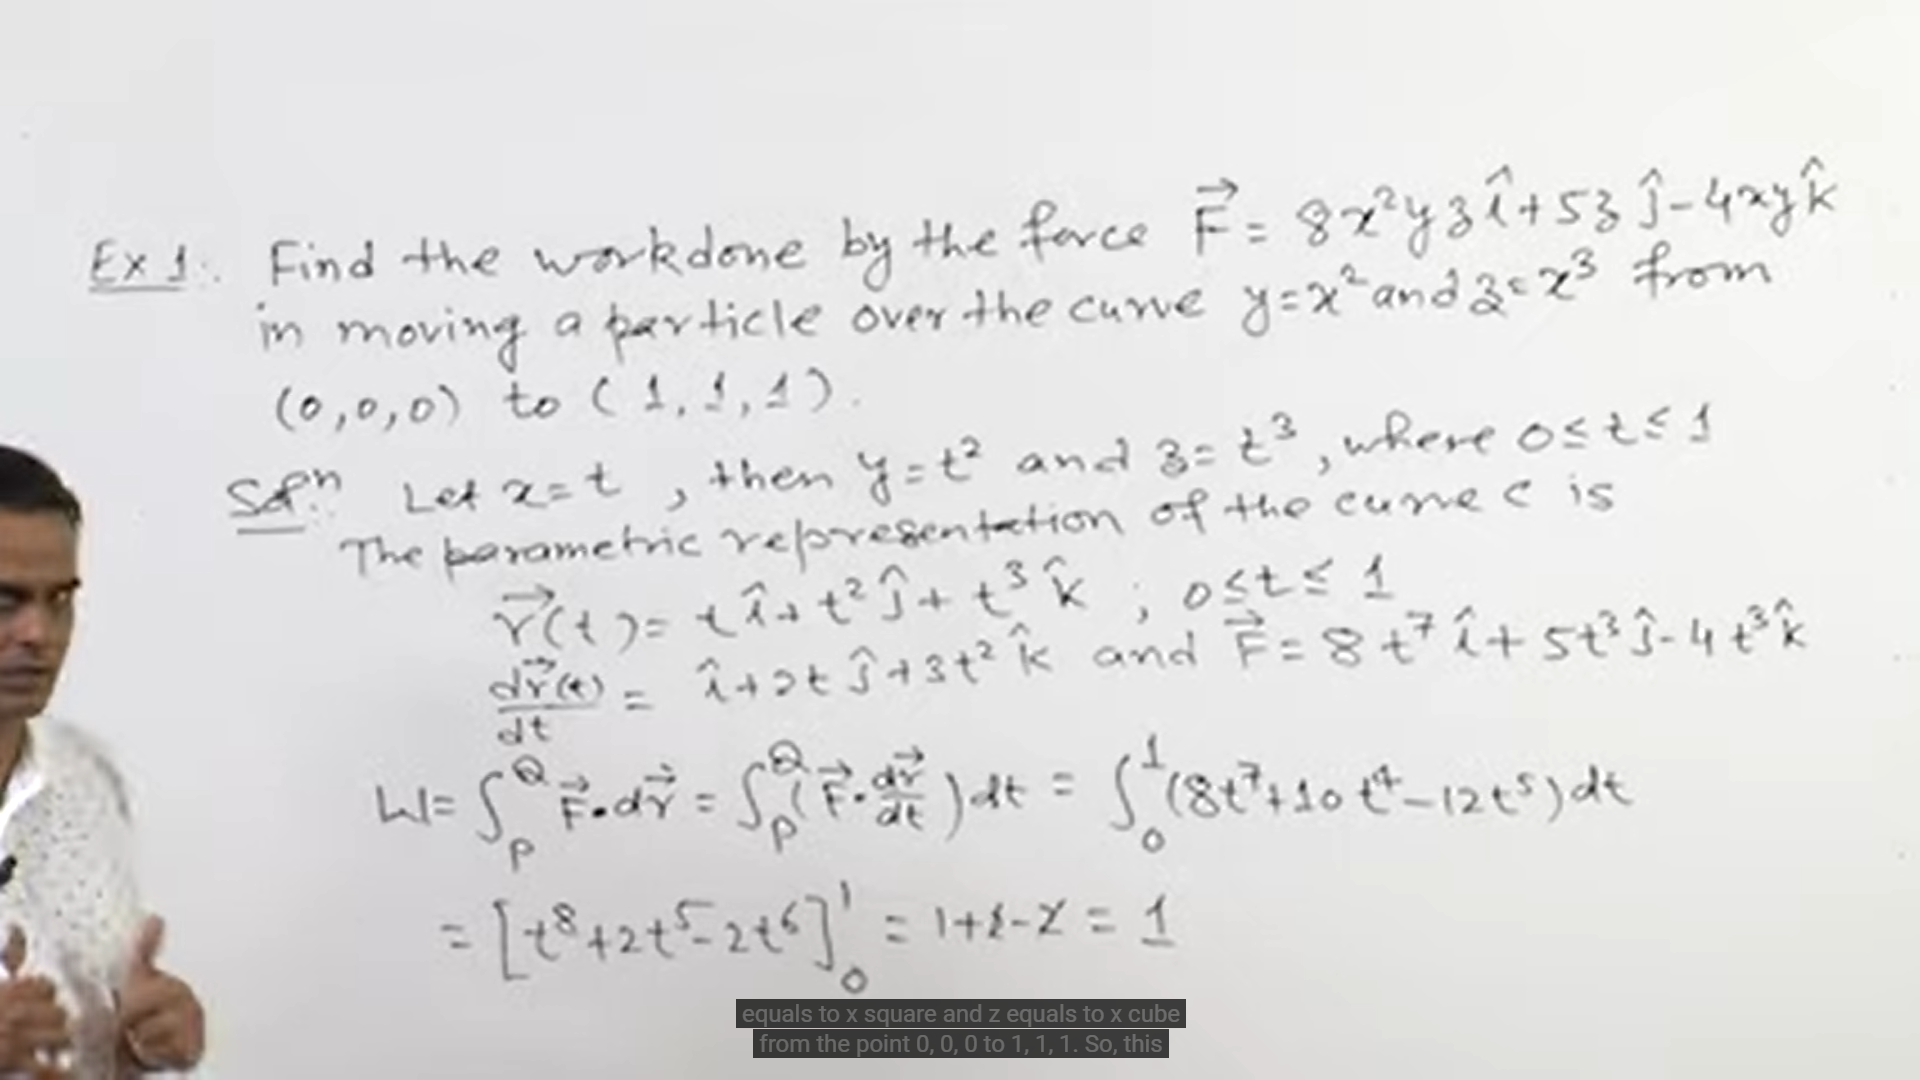 Ex 1:. Find the workdone by the force F⃗ = 8x²yz î + 5z ĵ - 4xy k̂
in moving a particle over the curve y=x² and z=x³ from
(0,0,0) to (1,1,1).
Solⁿ: Let x=t, then y=t² and z=t³, where 0≤t≤1
The parametric representation of the curve C is
r⃗(t)= t î + t² ĵ + t³ k̂ ; 0≤t≤1
dr⃗(t)/dt = î+2t ĵ+3t² k̂ and F⃗ = 8t⁷ î + 5t³ ĵ - 4t³ k̂
W= ∫_P^Q F⃗·dr⃗ = ∫_P^Q (F⃗·dr⃗/dt)dt = ∫_0^1 (8t⁷+10t⁴-12t⁵)dt
= [t⁸+2t⁵-2t⁶]_0^1 = 1+2-2 = 1
equals to x square and z equals to x cube
from the point 0, 0, 0 to 1, 1, 1. So, this